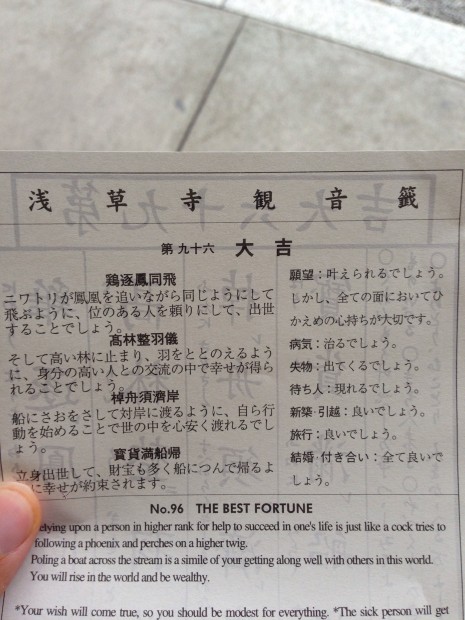 浅草寺観音籤
第九十六 大吉
鶏逐鳳同飛
ニワトリが鳳凰を追いながら同じようにして
飛ぶように、位のある人を頼りにして、出世
することでしょう。
高林整羽儀
そして高い林に止まり、羽をととのえるよう
に、身分の高い人との交流の中で幸せが得ら
れることでしょう。
棹舟須濟岸
船にさおをさして対岸に渡るように、自ら行
動を始めることで世の中を心安く渡れるでし
ょう。
寳貨満船帰
立身出世して、財宝も多く船につんで帰るよ
に幸せが約束されます。
願望：叶えられるでしょう。
しかし、全ての面においてひ
かえめの心持ちが大切です。
病気：治るでしょう。
失物：出てくるでしょう。
待ち人：現れるでしょう。
新築・引越：良いでしょう。
旅行：良いでしょう。
結婚・付き合い：全て良いで
しょう。
No.96 THE BEST FORTUNE
elying upon a person in higher rank for help to succeed in one's life is just like a cock tries to
following a phoenix and perches on a higher twig.
Poling a boat across the stream is a simile of your getting along well with others in this world.
You will rise in the world and be wealthy.
*Your wish will come true, so you should be modest for everything. *The sick person will get